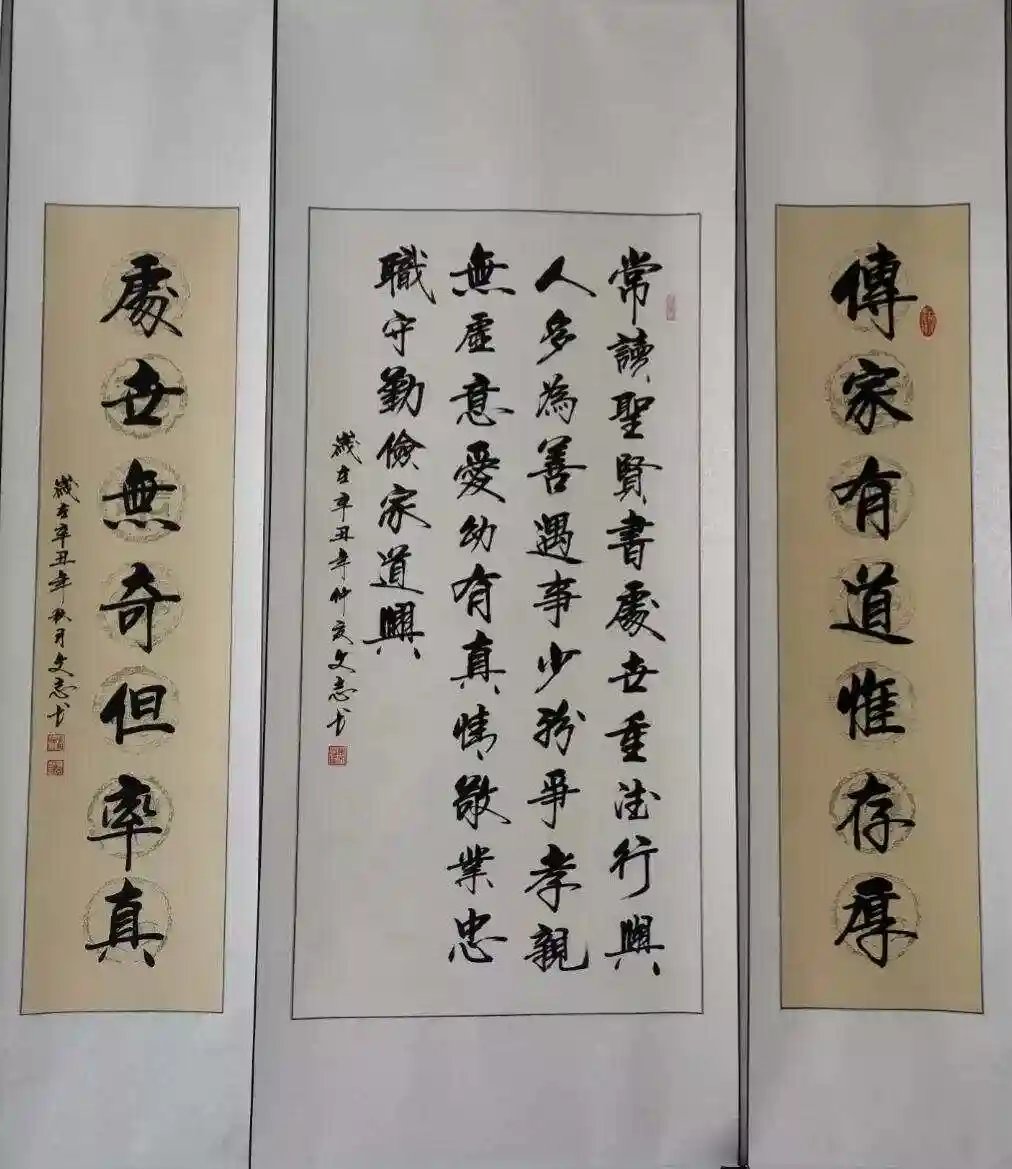 傳家有道惟存厚
常讀聖賢書處世重德行與
人多為善遇事少紛爭孝親
無虛意愛幼有真情敬業忠
職守勤儉家道興
歲在辛丑年仲夏文志书
處世無奇但率真
歲在辛丑年秋月文志书